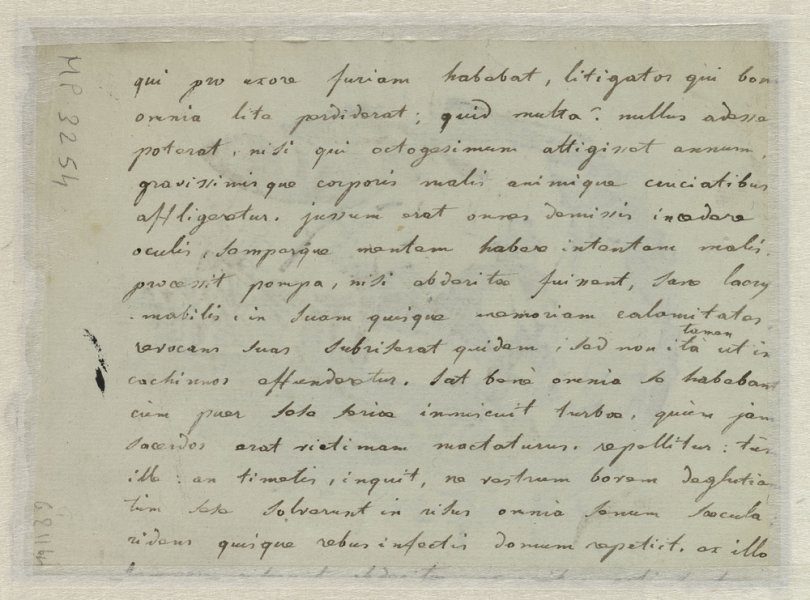 MP 3254
qui pro uxore furiam habebat, litigator qui bon
omnia lite perdiderat; quid multa? nullus adesse
poterat, nisi qui octogesimum attigisset annum,
gravissimisque corporis malis animique cruciatibus
affligeretur. jussum erat omnes demissis incedere
oculis, semperque mentem habere intentam malis.
processit pompa, nisi abderitæ fuissent, sane lacry
-mabilis; in suam quisque memoriam calamitates
revocans suas subriserat quidem; sed non ita tamen ut in
cachinnos effunderetur. sat benè omnia se habebant
cùm puer sese seriæ inmiscuit turbæ, quùm jam
sacerdos erat victimam mactaturus. repellitur: tùm
ille: an timetis, inquit, ne vestrum bovem deglutiam
tùm sese solverunt in risus omnia senum sæcula
ridens quisque rebus infectis domum repetiit. ex illo